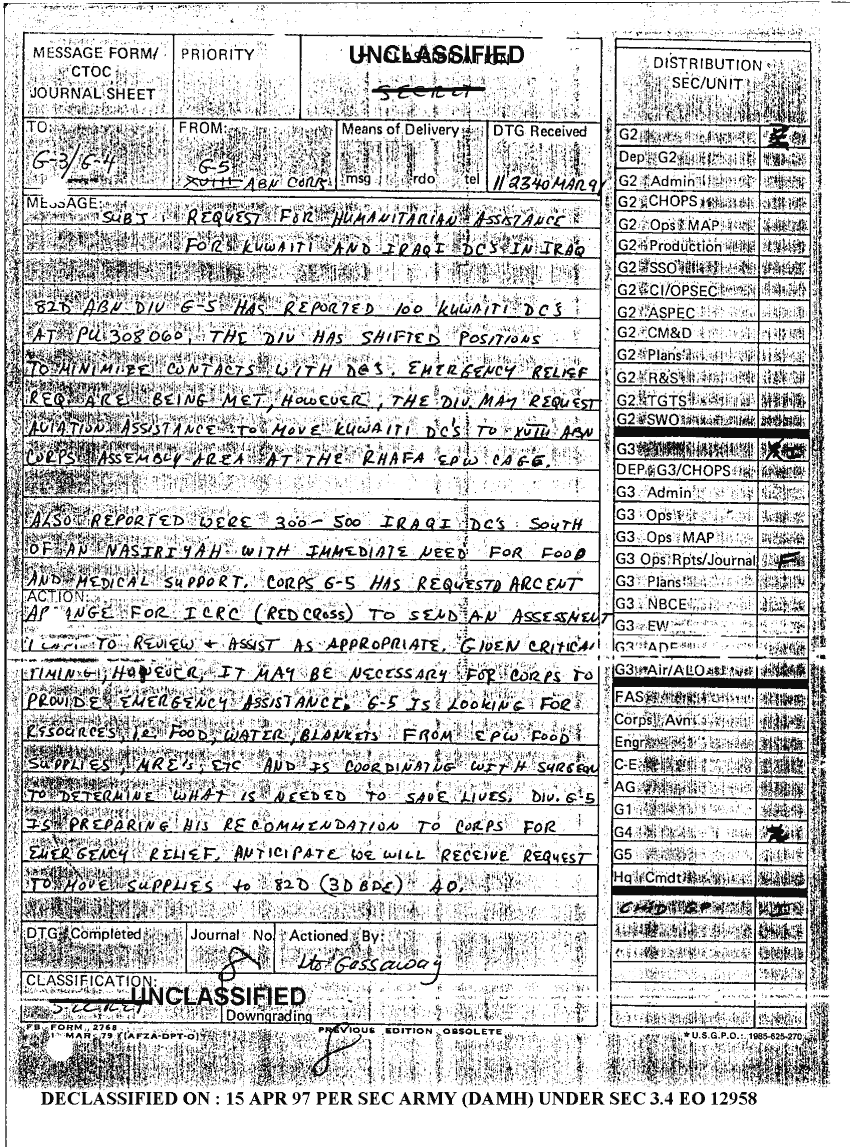 MESSAGE FORM/
CTOC
JOURNAL SHEET
PRIORITY
UNCLASSIFIED
SECRET
TO:
G-3/G-4
FROM:
G-5
XVIII ABN CORPS
Means of Delivery
msg rdo tel
DTG Received
112340MAR91
MESSAGE:
SUBJ: REQUEST FOR HUMANITARIAN ASSISTANCE
FOR KUWAITI AND IRAQI DC'S IN IRAQ
82D ABN DIV G-5 HAS REPORTED 100 KUWAITI DC'S
AT PU308060, THE DIV HAS SHIFTED POSITIONS
TO MINIMIZE CONTACTS WITH DCS. EMERGENCY RELIEF
REQ. ARE BEING MET, HOWEVER, THE DIV. MAY REQUEST
AVIATION ASSISTANCE TO MOVE KUWAITI DC'S TO XVIII ABN
CORPS ASSEMBLY AREA AT THE RHAFA EPW CAGE.
ALSO REPORTED WERE 300-500 IRAQI DC'S SOUTH
OF AN NASIRIYAH WITH IMMEDIATE NEED FOR FOOD
AND MEDICAL SUPPORT. CORPS G-5 HAS REQUESTD ARCENT
ACTION:
AR ANGE FOR ICRC (RED CROSS) TO SEND AN ASSESSMENT
TO REVIEW + ASSIST AS APPROPRIATE. GIVEN CRITICAL
TIMING, HOWEVER, IT MAY BE NECESSARY FOR CORPS TO
PROVIDE EMERGENCY ASSISTANCE. G-5 IS LOOKING FOR
RESOURCES, i.e. FOOD, WATER, BLANKETS FROM EPW FOOD
SUPPLIES, MRE'S, ETC AND IS COORDINATNG WITH SURGEON
TO DETERMINE WHAT IS NEEDED TO SAVE LIVES. DIV. G-5
IS PREPARING HIS RECOMMENDATION TO CORPS FOR
EMERGENCY RELIEF. ANTICIPATE WE WILL RECEIVE REQUEST
TO MOVE SUPPLIES to 82D (3D BDE) AO.
DTG Completed
Journal No.
8
Actioned By:
Gassaway
CLASSIFICATION:
SECRET
UNCLASSIFIED
Downgrading
FB FORM 2768
1 MAR 79 (AFZA-DPT-O)
PREVIOUS EDITION OBSOLETE
8
*U.S.G.P.O.: 1985-625-270
DISTRIBUTION
SEC/UNIT
G2
Dep G2
G2 Admin
G2 CHOPS
G2 Ops MAP
G2 Production
G2 SSO
G2 CI/OPSEC
G2 ASPEC
G2 CM&D
G2 Plans
G2 R&S
G2 TGTS
G2 SWO
G3
DEP G3/CHOPS
G3 Admin
G3 Ops
G3 Ops MAP
G3 Ops Rpts/Journal F
G3 Plans
G3 NBCE
G3 EW
G3 ADE
G3 Air/ALO
FAS
Corps Avn
Engr
C-E
AG
G1
G4
G5
Hq Cmdt
DECLASSIFIED ON : 15 APR 97 PER SEC ARMY (DAMH) UNDER SEC 3.4 EO 12958